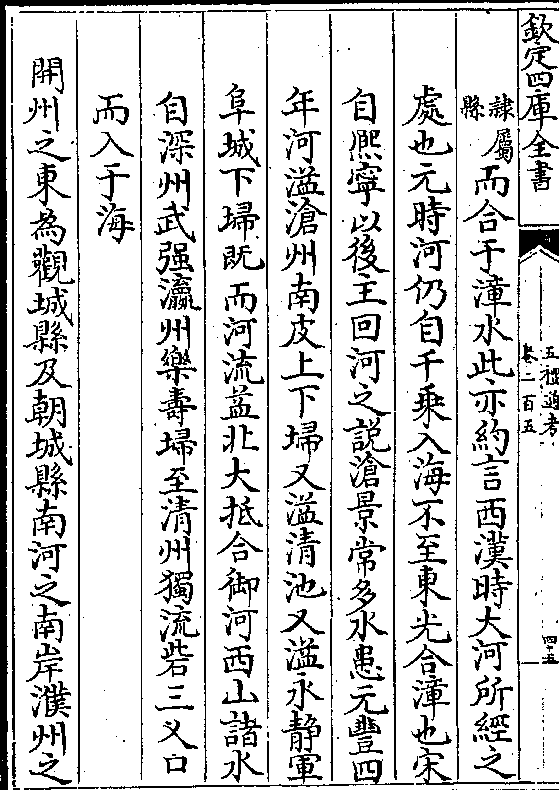 欽定四庫全書
五禮通考
卷二百五
四十五
隷屬
縣
而合于漳水此亦約言西漢時大河所經之
處也元時河仍自千乘入海不至東光合漳也宋
自熈寧以後主回河之説滄景常多水患元豐四
年河溢滄州南皮上下埽又溢清池又溢永静軍
阜城下埽既而河流益北大抵合御河西山諸水
自深州武强瀛州樂壽埽至清州獨流砦三叉口
而入于海
開州之東為觀城縣及朝城縣南河之南岸濮州之